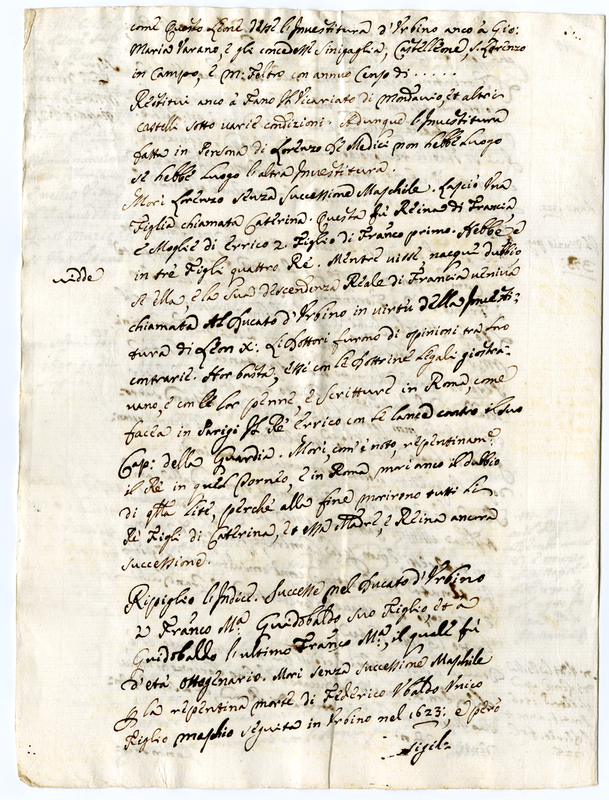 come questo Leone desse l'Investitura d'Urbino anco à Gio:
Maria Varano, e gli concedesse Sinigaglia, Castelleone, S. Lorenzo
in Campo, e M: Feltro con annuo Censo di . . . . . .
Restituì anco à Fano il Vicariato di Mondavio, et altri
Castelli sotto varie condizioni. Adunque l'Investitura
fatta in Persona di Lorenzo de Medici non hebbe luogo
se hebbe luogo l'altra Investitura.
Morì Lorenzo senza successione Maschile. Lasciò una
Figlia chiamata Caterina. Questa fù Reina di Francia
e Moglie di Errico 2. Figlio di Franco primo. Hebbe e
vidde
in trè Figli quattro Rè. Mentre visse, nacque dubbio
se ella, e la sua descendenza Reale di Francia veniva
chiamata al Ducato d'Urbino in virtù della Investi:
tura di Leon X: Li Dottori furno di opinioni trà loro
contrarie. Hor basta, essi con le Dottrine legali giostra:
vano, e con le lor penne, e Scritture in Roma, come
facea in Parigi il Rè Errico con le lance contro il suo
Cap: della Guardia. Morì, com'è noto, repentinam.e
il Rè in quel Torneo, e in Roma morì anco il dubbio
di q.sta lite, perche alla fine morirono tutti li
Rè Figli di Caterina, et essa Madre, e Reina ancora
successione.
Ripiglio l'Indice. Successe nel Ducato d'Urbino
à Franco M.a Guidobaldo suo Figlio, et a
Guidobaldo l'ultimo Franco M.a, il quale fù
d'età ottogenario. Morì senza successione Maschile
p la repentina morte di Federico Ubaldo Unico
Figlio maschio seguita in Urbino nel 1623:, e però
Sigil: